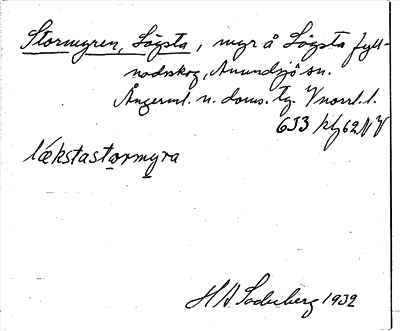 Stormyren, Lögsta, myr å Lögsta fyll-
nadsskog, Anundsjö sn.
Ångerml. n. doms. tg. Vnorrl. l.
6J3 kfg 62 NV
lækstastormyra
H A Söderberg 1932